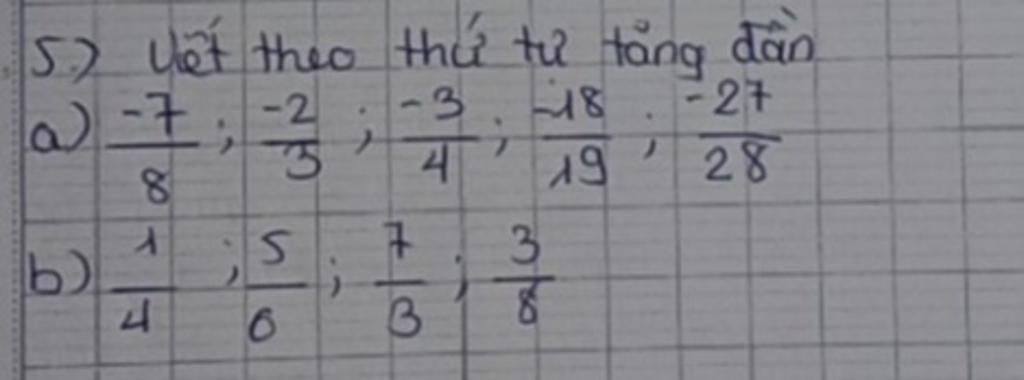 5.) Viết theo thứ tự tăng dần
a) -7/8 ; -2/3 ; -3/4 ; -18/19 ; -27/28
b) 1/4 ; 5/6 ; 7/3 ; 3/8